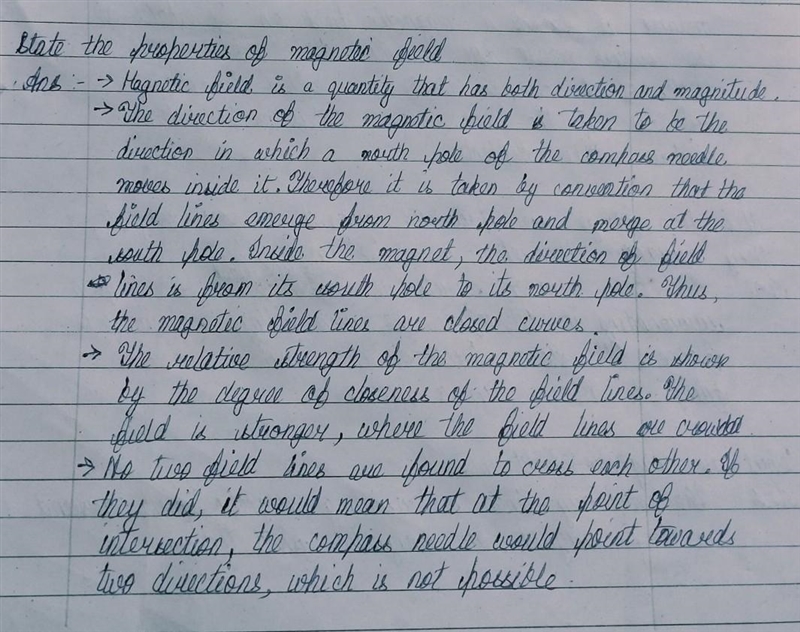 State the properties of magnetic field
Ans :- → Magnetic field is a quantity that has both direction and magnitude.
→ The direction of the magnetic field is taken to be the
direction in which a north pole of the compass needle
moves inside it. Therefore it is taken by convention that the
field lines emerge from north pole and merge at the
south pole. Inside the magnet, the direction of field
lines is from its south pole to its north pole. Thus,
the magnetic field lines are closed curves.
→ The relative strength of the magnetic field is shown
by the degree of closeness of the field lines. The
field is stronger, where the field lines are crowded
→ No two field lines are found to cross each other. If
they did, it would mean that at the point of
intersection, the compass needle would point towards
two directions, which is not possible.